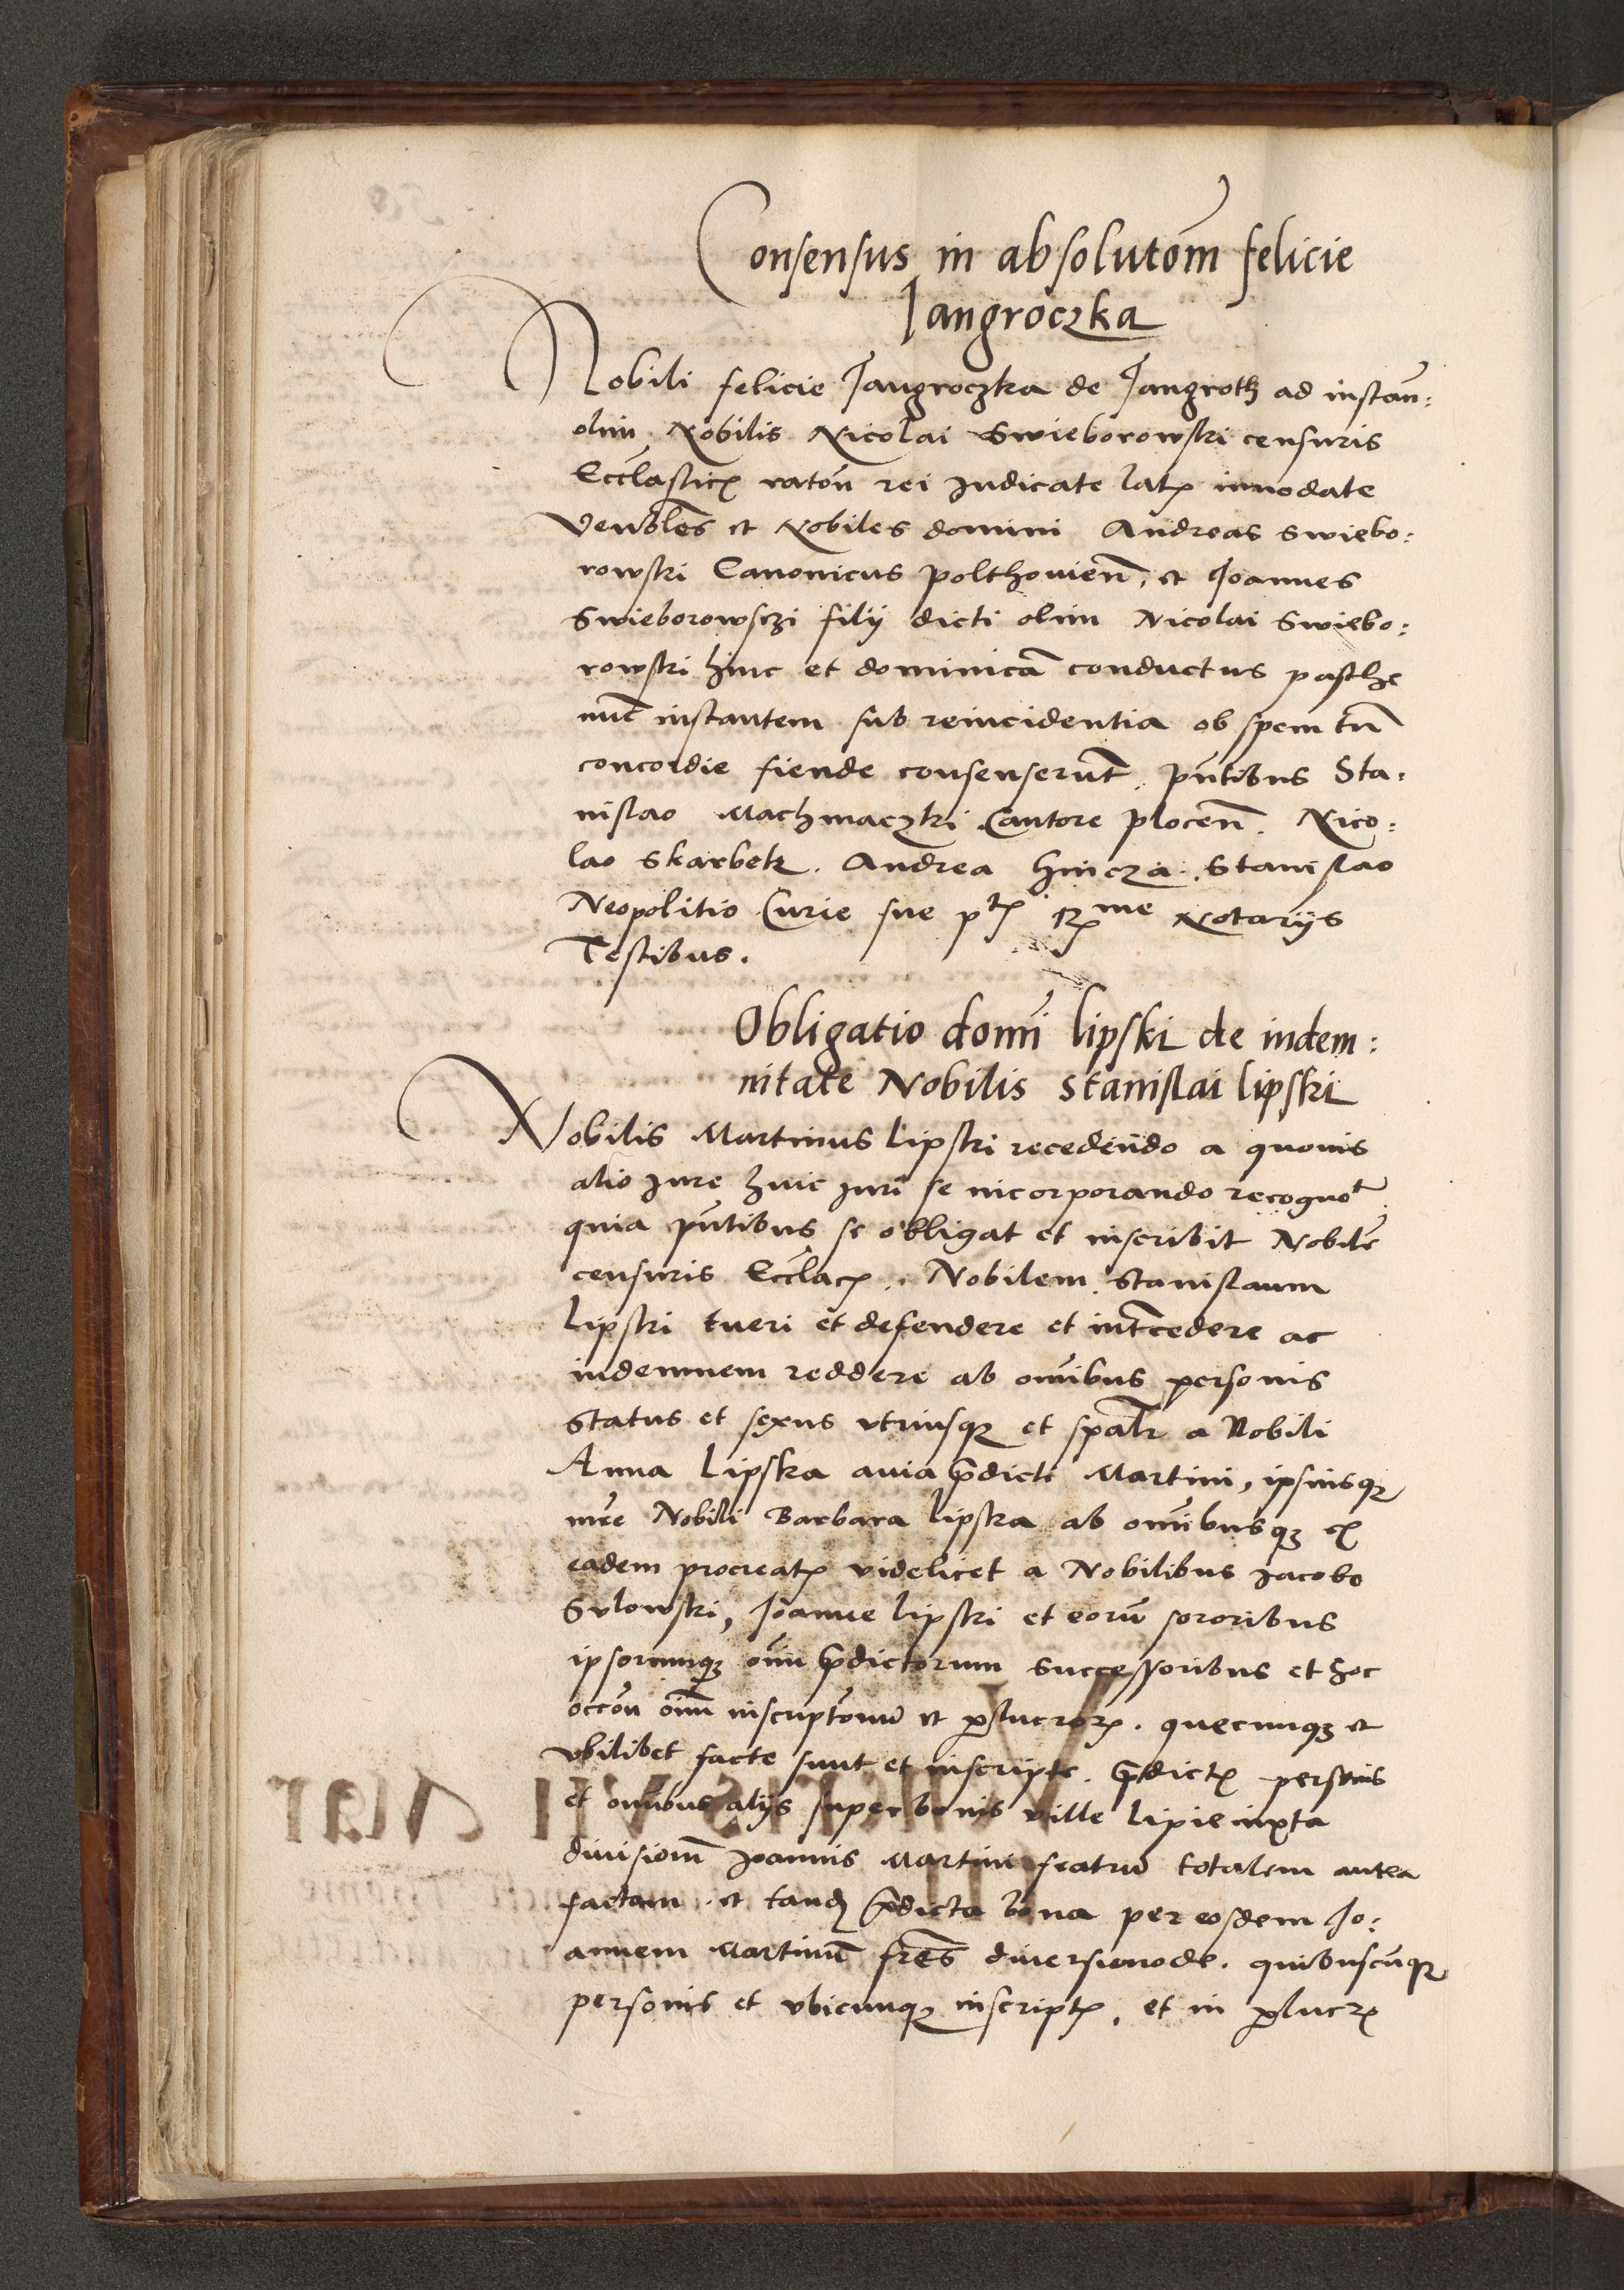 Consensus in absolutõm felicie
Jangroczka
Nobili felicie Jangroczka de Jangroth ad instan̄:
olim Nobilis Nicolai Swieborowski censuris
Eccl̃asticꝭ ratōn rei Judicate latꝭ innodate
Ven̄bles et Nobiles domini Andreas Swiebo:
rowski Canonicus polthouien̄. et Joannes
Swieborowsczi filij dicti olim Nicolai Swiebo:
rowski hinc et dominicā conductus pasche
nūc instantem sub reincidentia ob spem tn̄
concordie fiende consenserūt. pn̄tibus Sta:
nislao Machnaczki Cantore plocen̄. Nico:
lao Skarbek. Andrea hincza. Stanislao
Neopolitio Curie sue ptꝭ Rme Notarijs
Testibus.
Obligatio domī lipski de indem:
nitate Nobilis Stanislai lipski
Nobilis Martinus Lipski recedendo a quouis
alio Jure huic Juri se incorporando recognot
quia pn̄tibus se obligat et inscribit Nobilē
censuris Eccl̃acꝭ. Nobilem Stanislaum
Lipski tueri et defendere et int̄cedere ac
indemnem reddere ab omībus personis
status et sexus vtriusqꝫ et spāl̃r a Nobili
Anna Lipska auia p̄dicti Martini, ipsiusqꝫ
mr̄e Nobili Barbara lipska ab omībusqꝫ ex
eadem procreatꝭ videlicet a Nobilibus Jacobo
Sulowski, Joanne lipski et eorū sororibus
ipsorumqꝫ om̄i p̄dictorum successoribus et hoc
occōn om̄i inscriptōnū et p̄lucrorꝭ. quecunqꝫ et
vbilibet facte sunt et inscripte. p̄dictꝭ personis
et omībus alijs super bonis ville Lipie iuxta
diuisionē Joannis Martini fratrū totalem antea
factam. et tandꝫ p̄dicta bona per eosdem Jo:
annem Martinū fr̄es diuersimode. quibuscūqꝫ
personis et vbicunqꝫ inscriptꝭ, et in p̄lucrꝭ